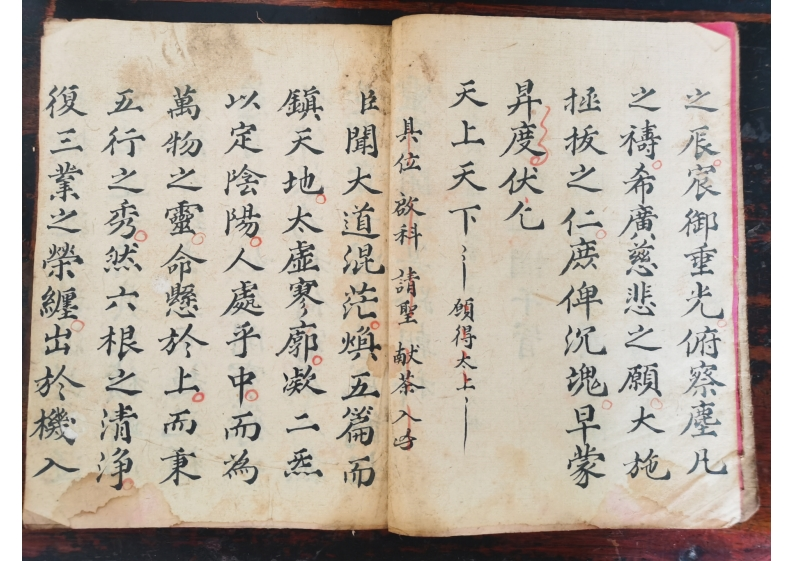 之辰宸御垂光俯察塵凡
之禱希廣慈悲之願大施
拯拔之仁庶俾沉塊早蒙
昇度伏乞
天上天下 願得太上
具位 啟科 請聖 献茶入
臣聞大道混茫煥五篇而
鎮天地太虛寥廓凝二炁
以定陰陽人處乎中而為
萬物之靈命懸於上而秉
五行之秀然六根之清浄
復三業之榮纏出於機入